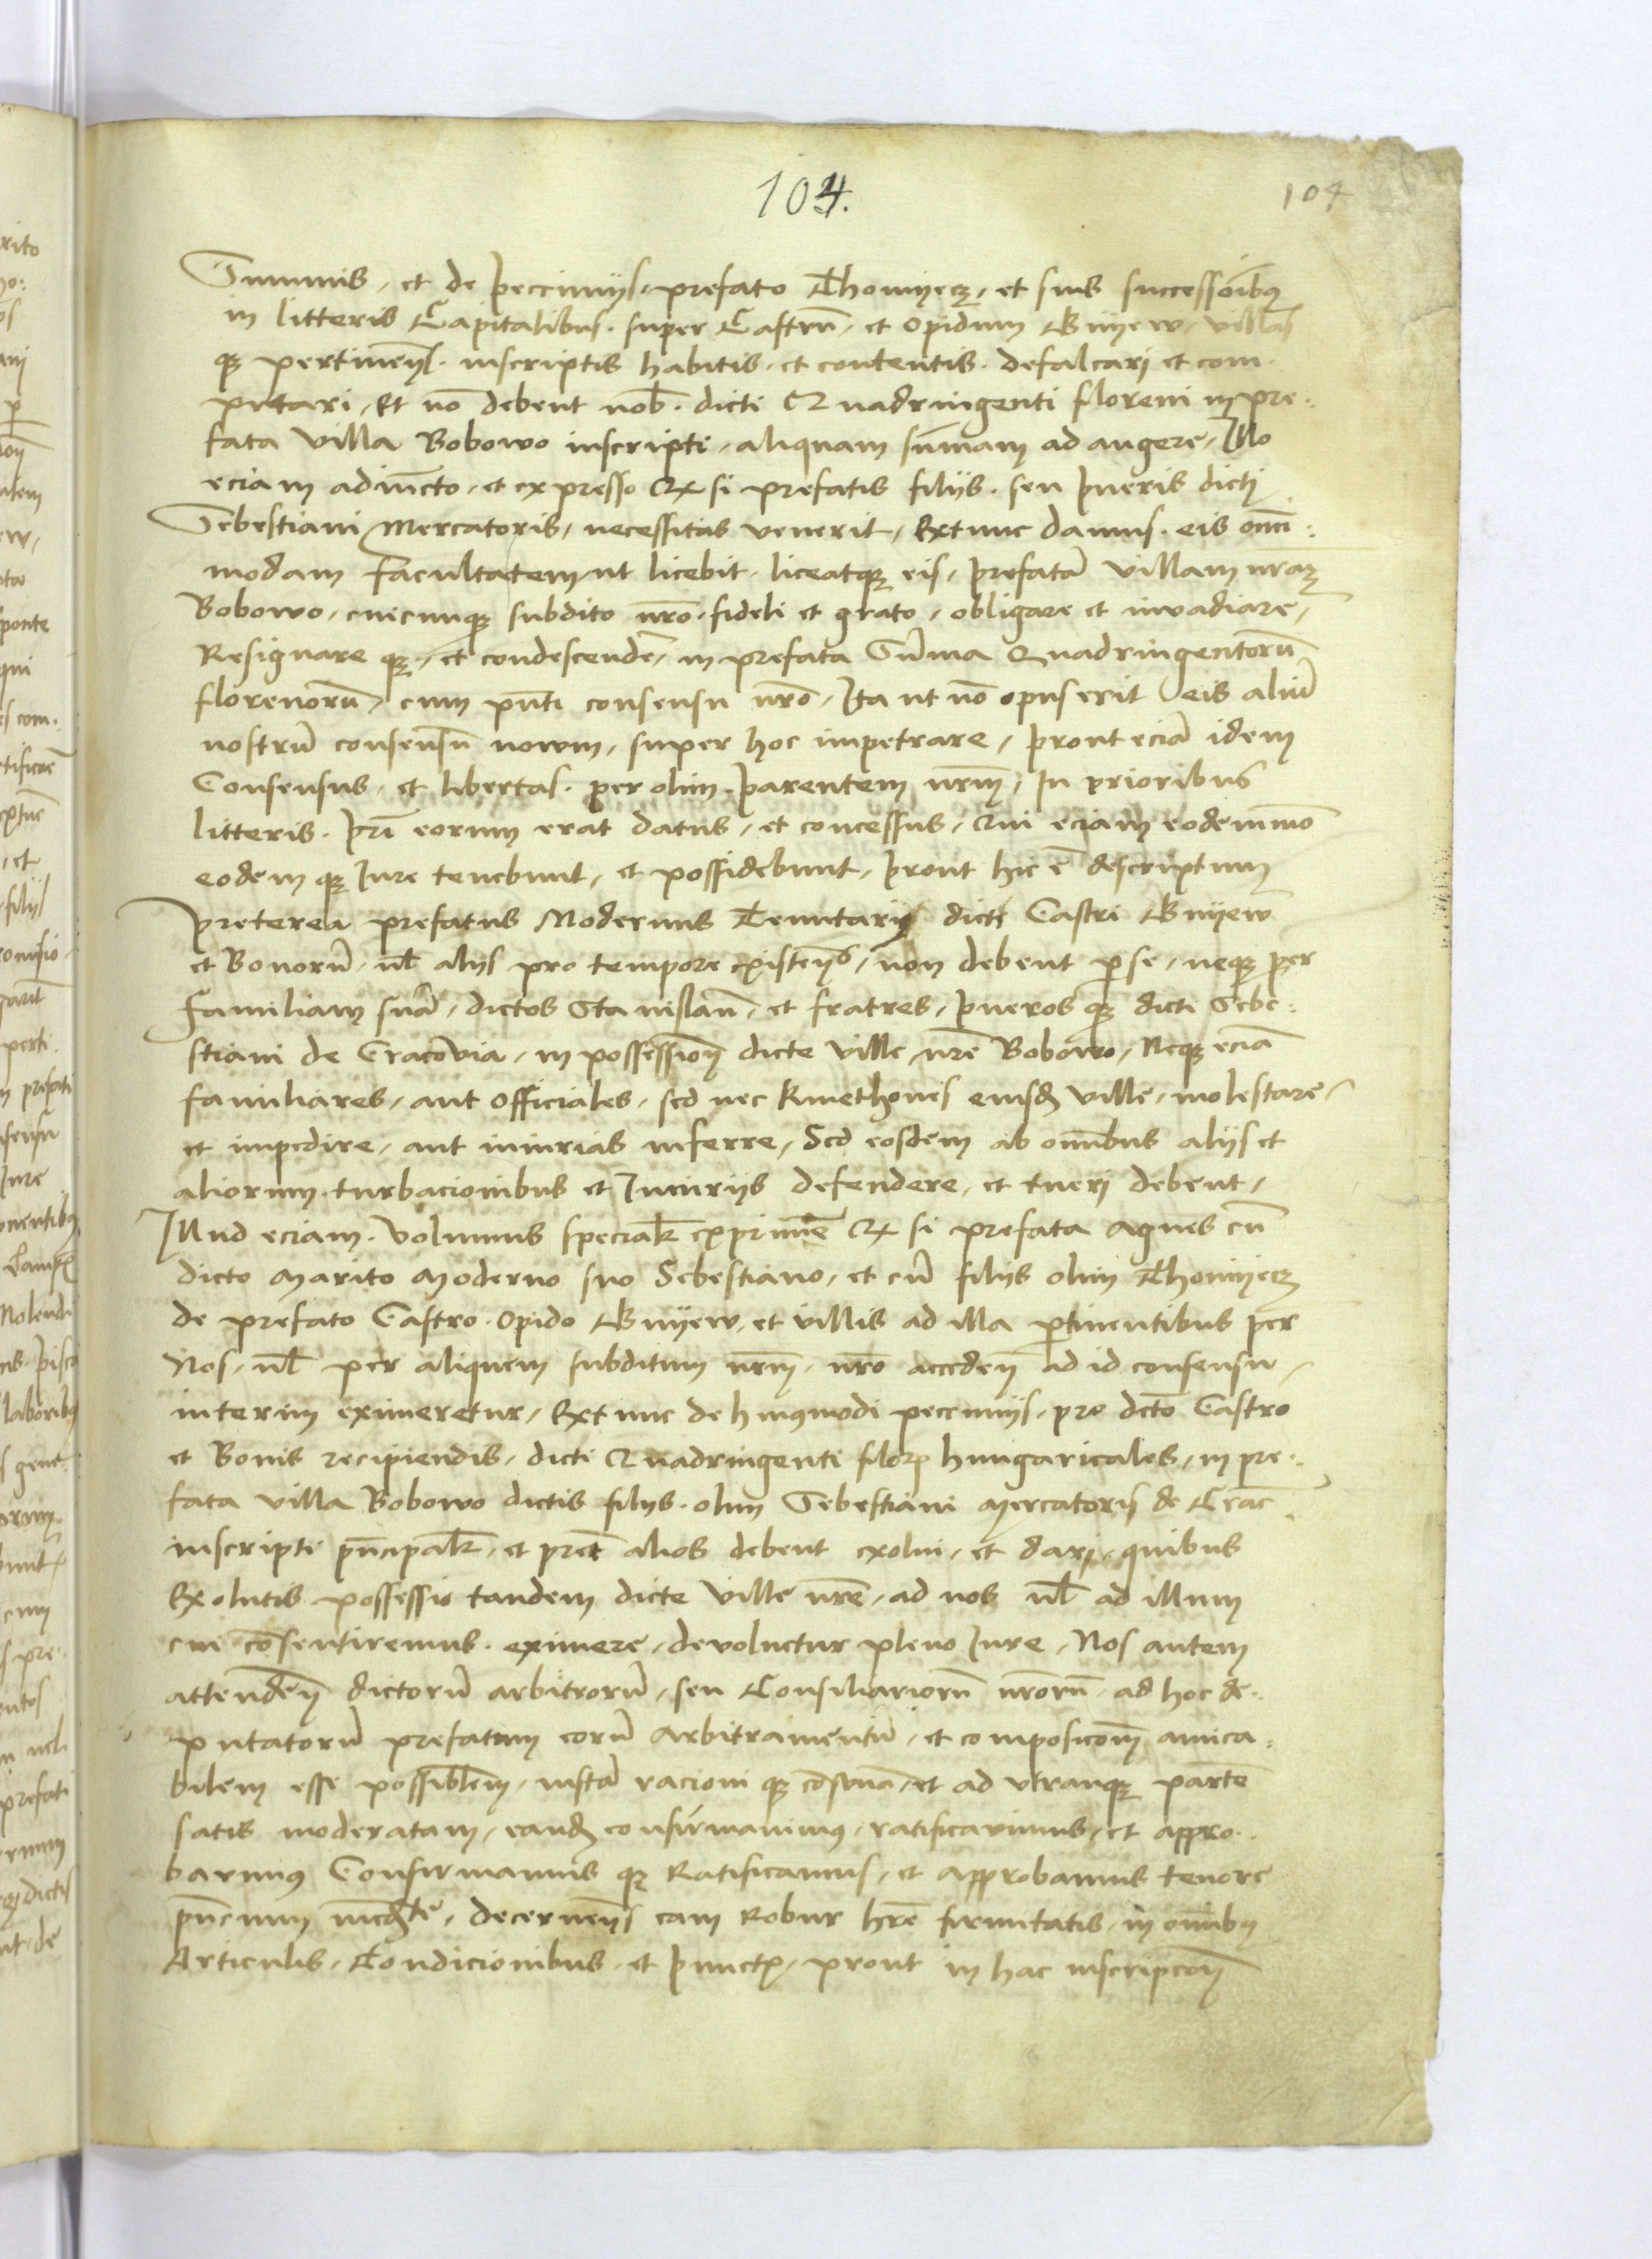 104.
104
Summis, et de pecuniis, prefato Thomyecz, et suis successoibus
in litteris Capitalibus. super Castru, et opidum Gnyew, villas
q pertinenciis. inscriptis habitis, et contentis. defalcari et com-
putari, Et no debent nob. dicti Quadringenti floreni in pre-
fata villa Bobowo inscripti, aliquam sumam ad augere, Illo
eciam adiuncto, et expresso Q si prefatis filiis. seu pueris dicti
Sebestiani Mercatoris, necessitas venerit, Extunc damus. eis omni-
modam facultatem, ut licebit, liceatq eis, prefata villam nram
Bobowo, cuicunq subdito nro. fideli et grato, obligare et invadiare,
Resignare q, et condescende, in prefata Suma Quadringentoru
florenoru, cum pnti consensu nro, Ita ut no opus erit eis aliu
nostru consensu novum, super hoc impetrare, prout ecia idem
Consensus, et libertas. per olim parentem nrm, In prioribus
litteris. pri eorum erat datus, et concessus, Qui eciam eodemmo
eodem q Iure tenebunt, et possidebunt, prout hic e descriptum
Preterea prefatus Modernus Tenutarius dicti Castri Gnyew
et Bonoru, ul alijs pro tempore existens, non debent p se, neq per
Familiam sua, dictos Stanislau, et fratres, pueros q dicti Sebe-
stiani de Cracovia, in possession dicte ville nre Bobowo, Neq ecia
familiares, aut officiales, sed nec kmethones eiusd ville, molestare,
et impedire, aut iniurias inferre, Sed eosdem ab omibus alijs et
aliorum turbacionibus et Iniurijs defendere, et tueri debent,
Illud eciam. volumus specialr exprimere Q si prefata Agnes cu
dicto Marito Moderno suo Sebestiano, et cu filijs olim Thomyecz
de prefato Castro. opido Gnyew, et villis ad illa ptinentibus per
Nos, ul per aliquem subditum nrm, nro acceden ad id consensu,
interim eximeretur, Extunc de huiusmodi pecunijs, pro dcto Castro
et Bonis recipiendis, dicti Quadringenti flor hungaricales, in pre-
fata villa Bobowo dictis filijs. olim Sebestiani Mercatoris de Crac
inscripti pncipalr, et pret alios debent exolui, et dari, quibus
Exolutis possessio tandem dicte ville nre, ad nos ul ad illum
cui consentiremus. eximere, devoluetur pleno Iure, Nos autem
attenden dictoru arbitroru, seu Consiliarioru nroru ad hoc de-
putatoru prefatum eoru Arbitramentu, et composicom amica-
bilem esse possiblem, iusta racioni q consona, et ad utranq parte
satis moderatam, eand confirmavimus, ratificavimus, et appro-
bavimus Confirmamus q Ratificamus, et Approbamus tenore
pncium, decernens eam Robur hre firmitatis, in omibus
Articulis, Condicionibus, et punct, prout in hac inscripcon